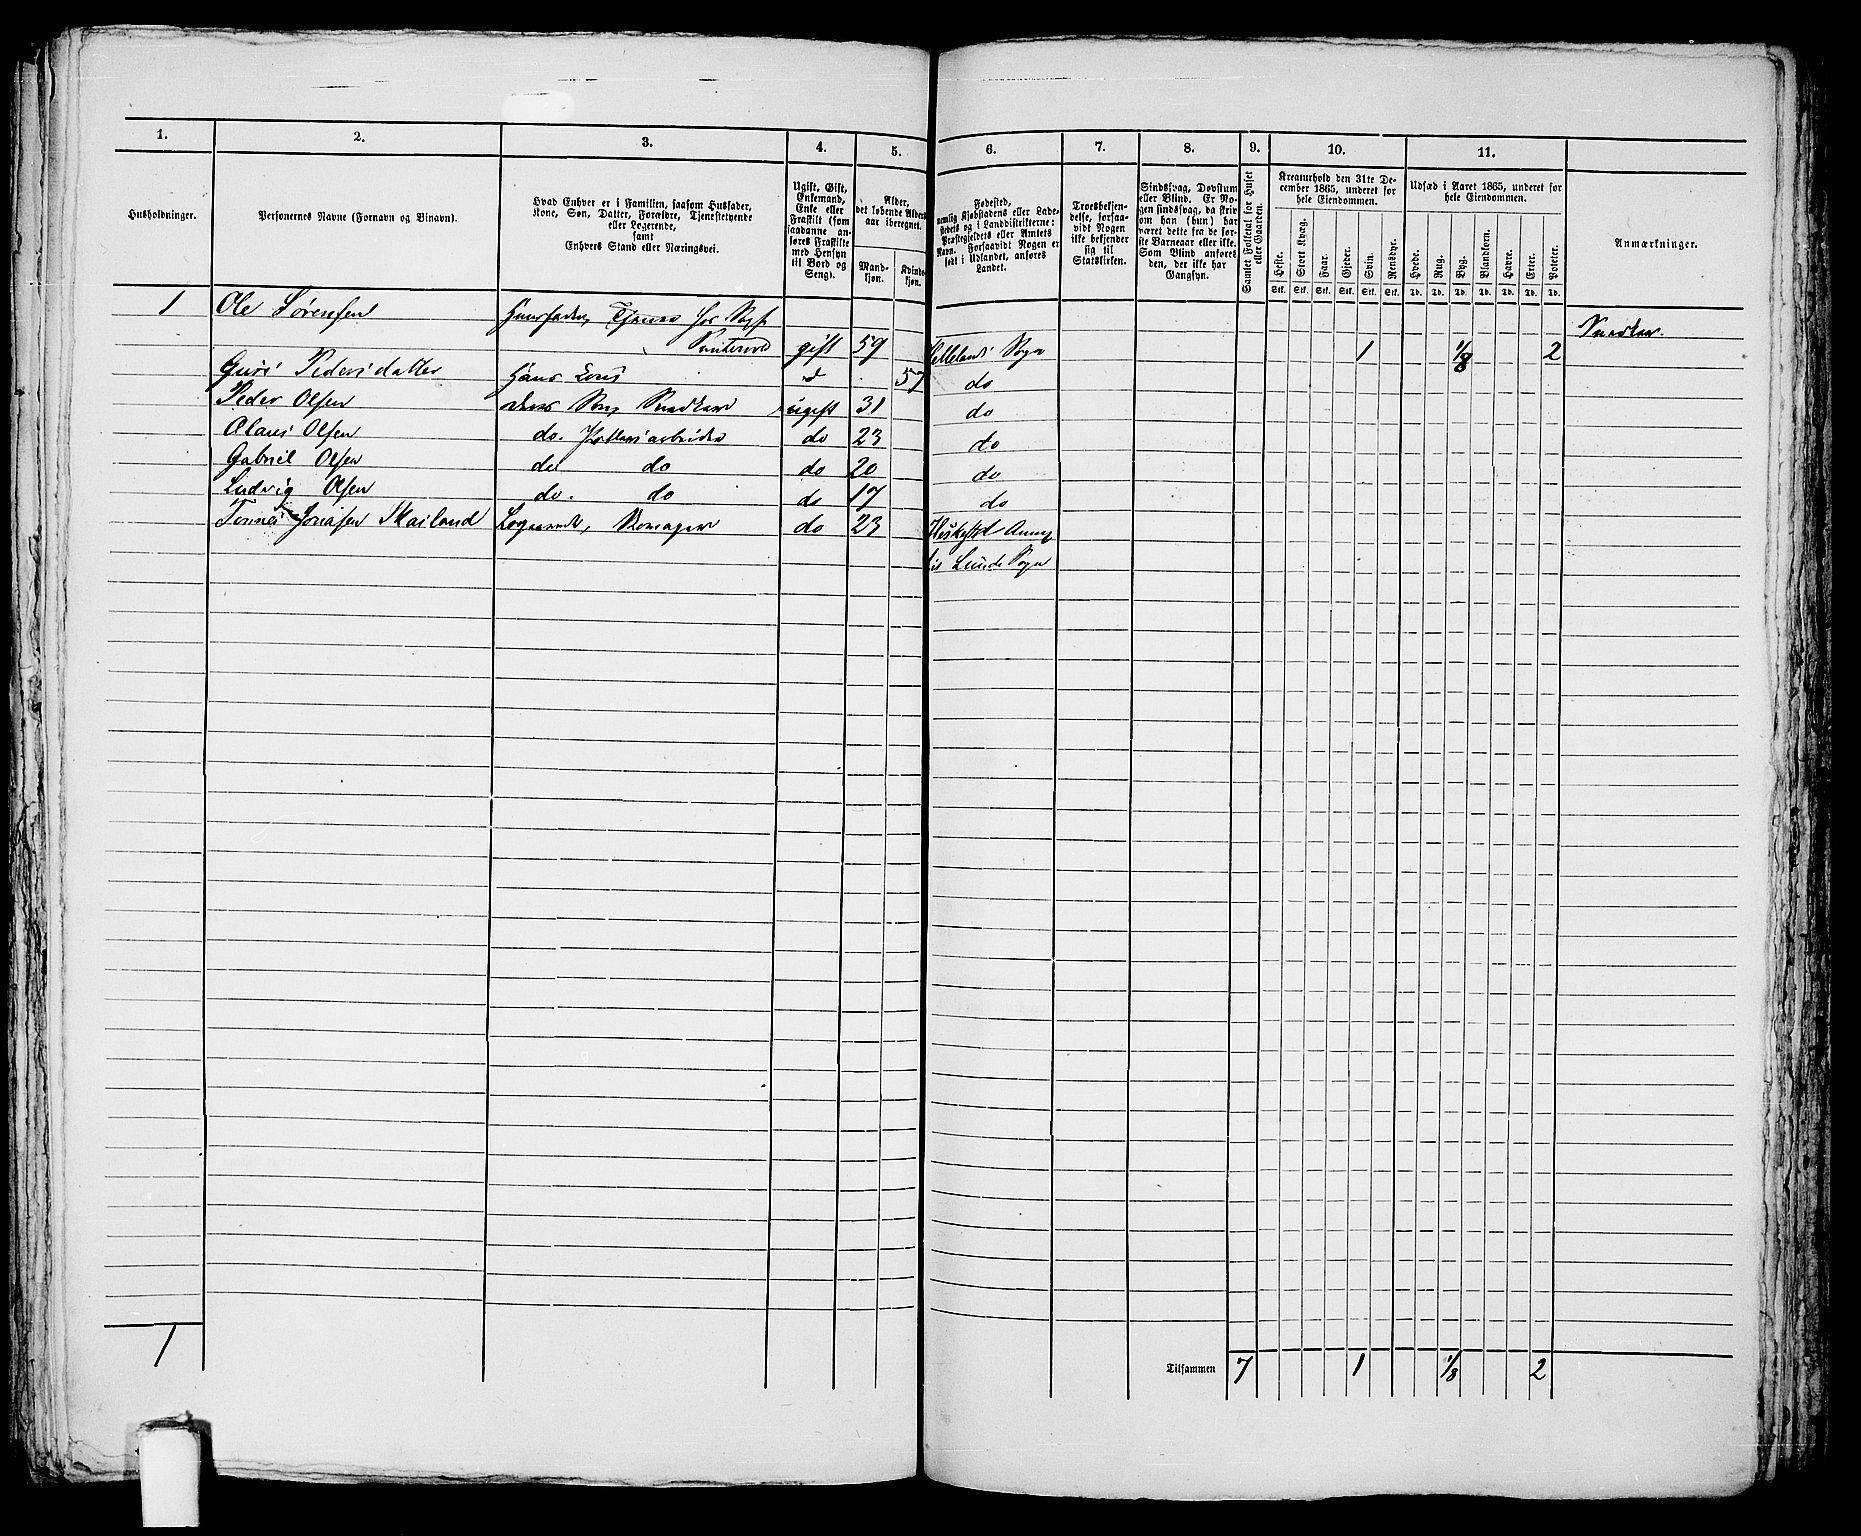 1. 2. 3. 4. 5. 6. 7. 8. 9. 10. 11.
Husholdninger.
Personernes Navne (Fornavn og Binavn).
Hvad Enhver er i Familien, saasom Husfader,
Kone, Søn, Datter, Forældre, Tjenestetyende
eller Logerende,
samt
Enhvers Stand eller Næringsvei.
Ugift, Gift,
Enkemand,
Enke eller
Fraskilt (som
saadanne an-
føres Fraskilte
med Hensyn
til Bord og
Seng).
Alder,
det løbende Alders-
aar iberegnet.
Mand-
kjøn.
Kvinde-
kjøn.
Fødested,
nemlig Kjøbstadens eller Lade-
stedets og i Landdistrikterne:
Præstegjeldets eller Amtets
Navn. Forsaavidt Nogen er
født i Udlandet, anføres
Landet.
Troesbekjen-
delse, forsaa-
vidt Nogen
ikke bekjender
sig til
Statskirken.
Sindssvag, Døvstum
eller Blind. Er No-
gen sindssvag, da skriv
om han (hun) har
været dette fra de før-
ste Barneaar eller ikke.
Som Blind anføres
den, der ikke har
Gangsyn.
Samlet Folketal for Huset
eller Gaarden.
Kreaturhold den 31te De-
cember 1865, underet for
hele Eiendommen.
Heste. Stort Kvæg. Faar. Gjeder. Svin. Rensdyr.
Stk. Stk. Stk. Stk. Stk. Stk.
Udsæd i Aaret 1865, underet for
hele Eiendommen.
Hvede. Rug. Byg. Blandkorn. Havre. Erter. Poteter.
Td. Td. Td. Td. Td. Td. Td.
Anmærkninger.
1 Ole Sørensen Huusfader,
gift 59 Sogn 1 1/8 2
Guri Pedersdatter Hans 57 do
Peder Olsen ugift 31 do
Olaus Olsen do. do 23 do
Gabriel Olsen do do do 20 do
Ludvig Olsen do. do do 17 do
Tønnes Jonasen Skailand do 23
Lunde Sogn
1 Tilsammen 7 1 1/8 2